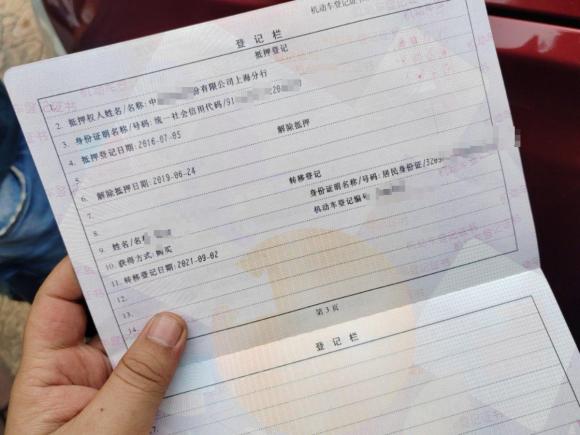 机动车登记证书
登记栏
抵押登记
1.
2. 抵押权人姓名/名称: 中 份有限公司上海分行
3. 身份证明名称/号码: 统一社会信用代码/91 20
4. 抵押登记日期: 2016-07-05
5. 解除抵押
6. 解除抵押日期: 2019-06-24
7. 转移登记
8. 身份证明名称/号码: 居民身份证/3203
9. 姓名/名称: 机动车登记编号:
10. 获得方式: 购买
11. 转移登记日期: 2021-09-02
12.
13.
14.
第3页
登记栏